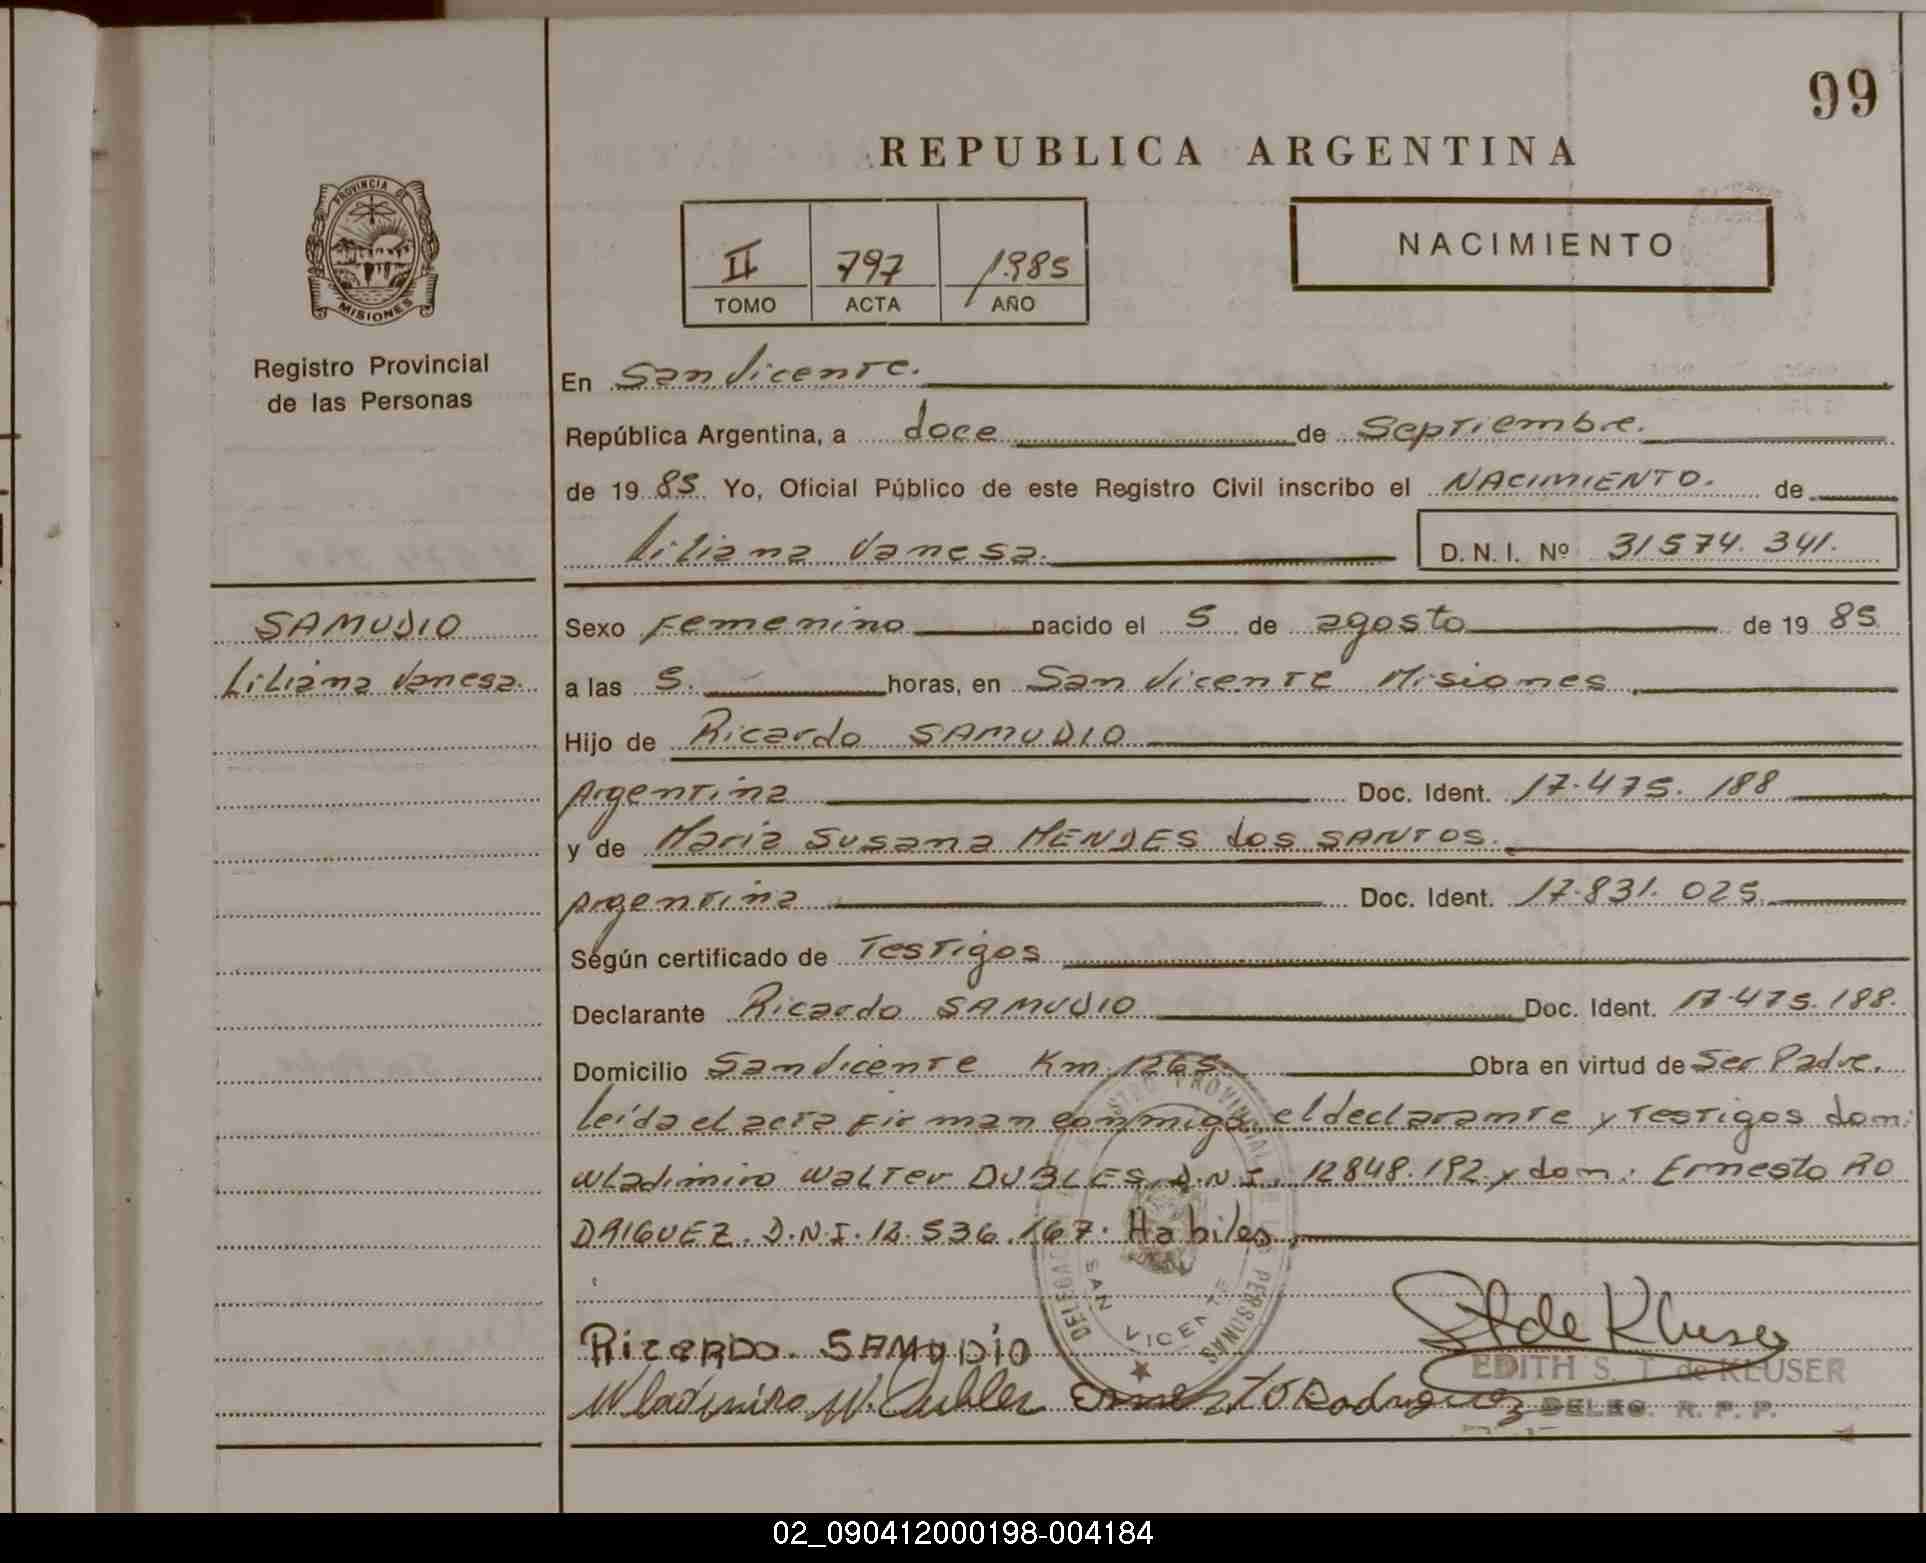 99
REPUBLICA ARGENTINA
PROVINCIA DE
MISIONES
II 797 1985
TOMO ACTA AÑO
NACIMIENTO
Registro Provincial
de las Personas
En San Vicente.
República Argentina, a doce de Septiembre.
de 19 85 Yo, Oficial Público de este Registro Civil inscribo el NACIMIENTO. de
Liliana Vanesa. D. N. I. Nº 31574.341.
SAMUDIO
Liliana Vanesa.
Sexo Femenino nacido el 5 de agosto de 19 85
a las 5. horas, en San Vicente Misiones
Hijo de Ricardo SAMUDIO
Argentina Doc. Ident. 17.475.188
y de Maria Susana MENDES dos SANTOS.
Argentina Doc. Ident. 17.831.025
Según certificado de Testigos
Declarante Ricardo SAMUDIO Doc. Ident. 17.475.188.
Domicilio San Vicente Km 1265 Obra en virtud de Ser Padre.
Leída el acta firman conmigo el declarante y Testigos dom:
Wladimiro Walter DUBLES D.N.I. 12848.192 y dom: Ernesto RO
DRIGUEZ. D.N.I. 12.536.167. Habiles
DELEGACION SAN VICENTE
Ricardo. SAMUDIO
Wladimiro W. Dubles Ernesto Rodriguez
St de Kluser
EDITH S. T. de KLUSER
DELEG. R. P. P.
02_090412000198-004184